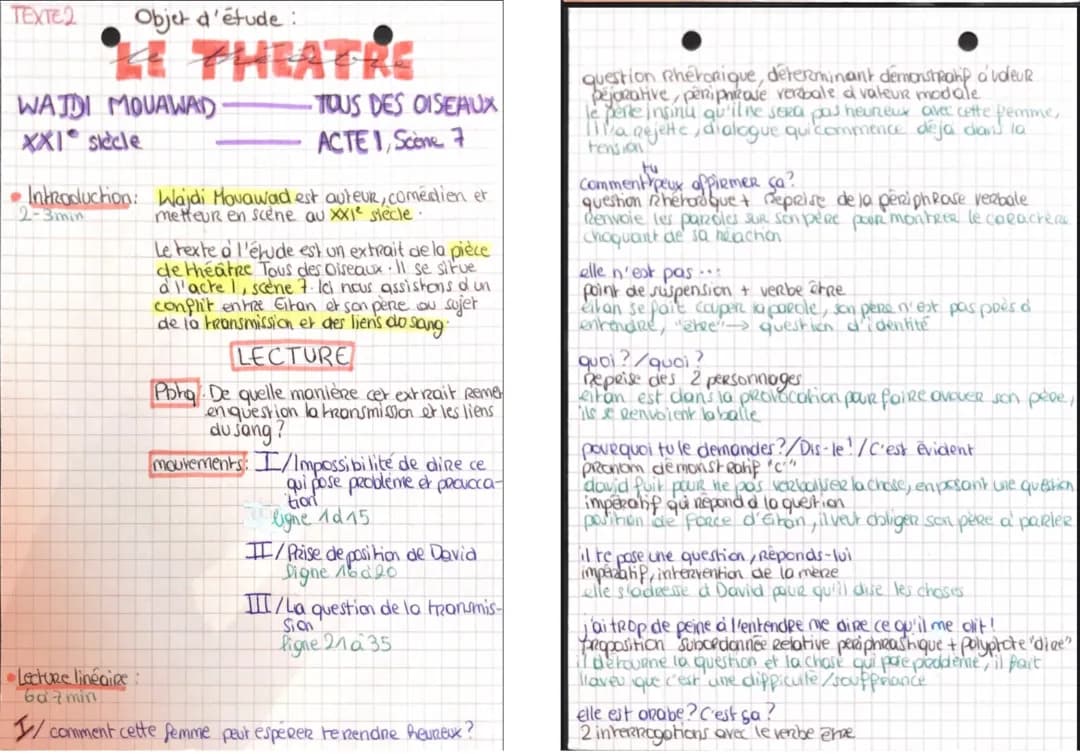 TEXTE 2
Objet d'étude :
LE THEATRE
le théâtre
WAJDI MOUAWAD — TOUS DES OISEAUX
XXIe siècle — ACTE I, Scène 7
• Introduction:
2-3min
Wajdi Mouawad est auteur, comédien et
metteur en scène au XXIe siècle.
Le texte à l'étude est un extrait de la pièce
de théâtre Tous des Oiseaux. Il se situe
à l'acte I, scène 7. Ici nous assistons à un
conflit entre Eitan et son père au sujet
de la transmission et des liens du sang.
LECTURE
Pbtq: De quelle manière cet extrait remet
en question la transmission et les liens
du sang ?
mouvements: I/Impossibilité de dire ce
qui pose problème et provoca-
tion
ligne 1 à 15
II/Prise de position de David
ligne 16 à 20
III/La question de la transmis-
sion
ligne 21 à 35
• Lecture linéaire :
6 à 7 min
I/ comment cette femme peut espérer te rendre heureux ?
question rhétorique, déterminant démonstratif à valeur
péjorative, périphrase verbale à valeur modale
le père insinu qu'il ne sera pas heureux avec cette femme,
il la rejette, dialogue qui commence déjà dans la
tension
comment tu peux affirmer ça?
question rhétorique + reprise de la périphrase verbale
Renvoie les paroles sur son père pour montrer le caractère
choquant de sa réaction
elle n'est pas ...:
point de suspension + verbe être
eitan se fait couper la parole, son père n'est pas près à
entendre, "être" → question d'identité
quoi ? /quoi ?
Reprise des 2 personnages
eitan est dans la provocation pour faire avouer son père,
ils se renvoient la balle
pourquoi tu le demandes?/Dis-le!/C'est évident
pronom démonstratif "c'"
david fuit pour ne pas verbaliser la chose, en posant une question
impératif qui répond à la question
position de force d'Eitan, il veut obliger son père à parler
il te pose une question, réponds-lui
impératif, intervention de la mère
elle s'adresse à David pour qu'il dise les choses
j'ai trop de peine à l'entendre me dire ce qu'il me dit!
proposition subordonnée relative périphrastique + polyptote "dire"
il détourne la question et la chose qui pose problème, il fait
l'aveu que c'est une difficulté/souffrance
elle est arabe? C'est ça ?
2 interrogations avec le verbe être